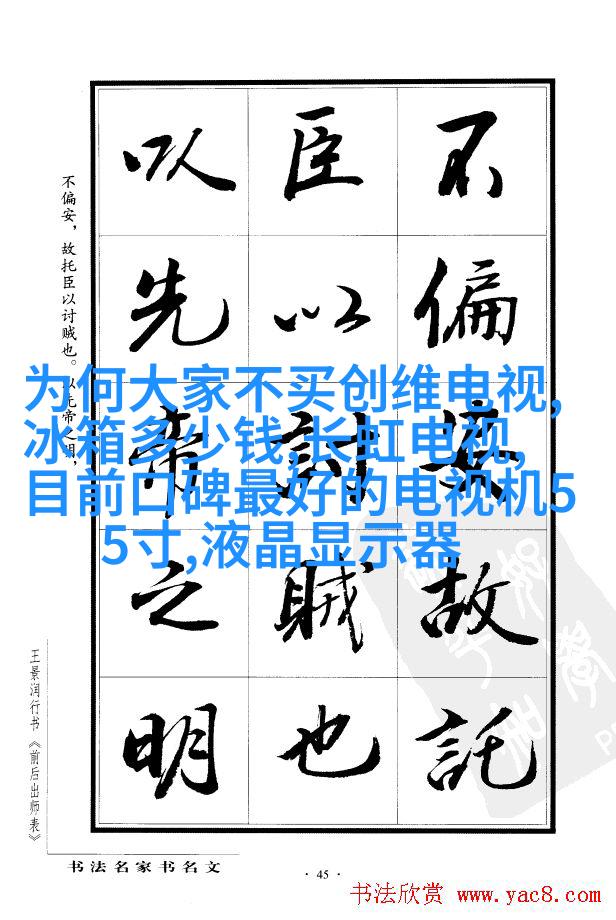 不偏安故託
臣以討賊也
以先帝之明
不偏安，故托臣以讨贼也。以先帝之明，
为何大家不买创维电视,
冰箱多少钱,长虹电视,
目前口碑最好的电视机5
5寸,液晶显示器
王景润行书《前后出师表》
书法名家书名文
· 45 ·
书法欣赏 www.yac8.com